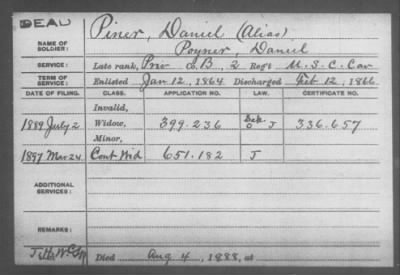 DEAU
Piner, Daniel (Alias)
NAME OF SOLDIER: Poyner, Daniel
SERVICE: Late rank, Priv Co B, 2 Reg't U.S.C. Cav
TERM OF SERVICE: Enlisted Jan 12, 1864 Discharged Feb 12, 1866
DATE OF FILING. CLASS. APPLICATION NO. LAW. CERTIFICATE NO.
Invalid,
1889 July 2 Widow, 399.236 J 336.657
Minor,
1897 Mar 24 Cont Wid 651.182 J
ADDITIONAL SERVICES:
REMARKS:
Died Aug 4, 1888, at